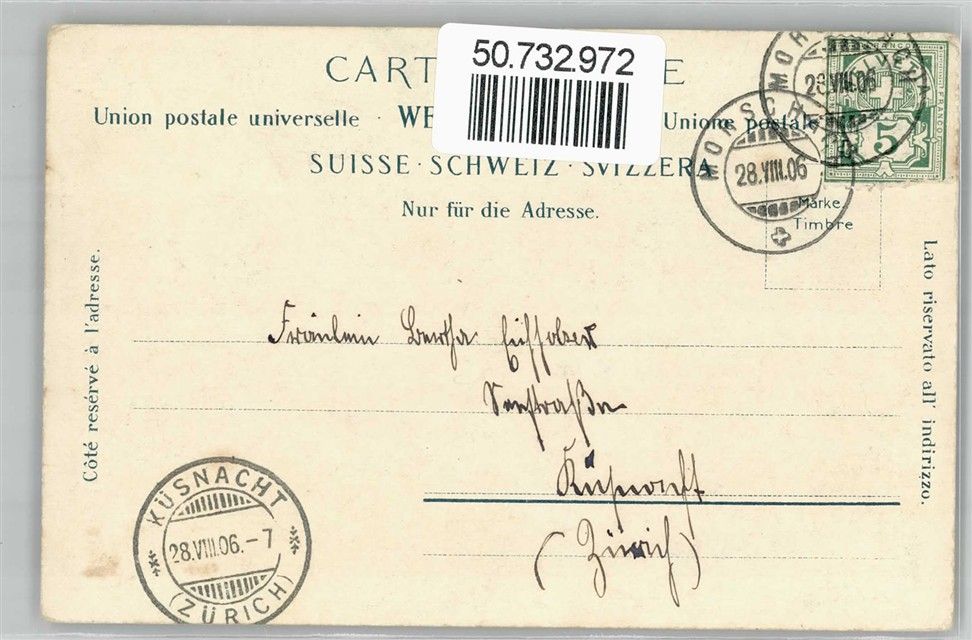 50.732.972
CART E
Union postale universelle · WE Unione postale
SUISSE · SCHWEIZ · SVIZZERA
Nur für die Adresse.
Marke.
Timbre
5
FRANCO
HELVETIA
MORSCHACH
28.VIII.06
MORSCHACH
28.VIII.06
Côté resérvé à l'adresse.
Lato riservato all' indirizzo.
Fräulein Bertha
Seestraße
Küsnacht
(Zürich)
KÜSNACHT
28.VIII.06.-7
(ZÜRICH)